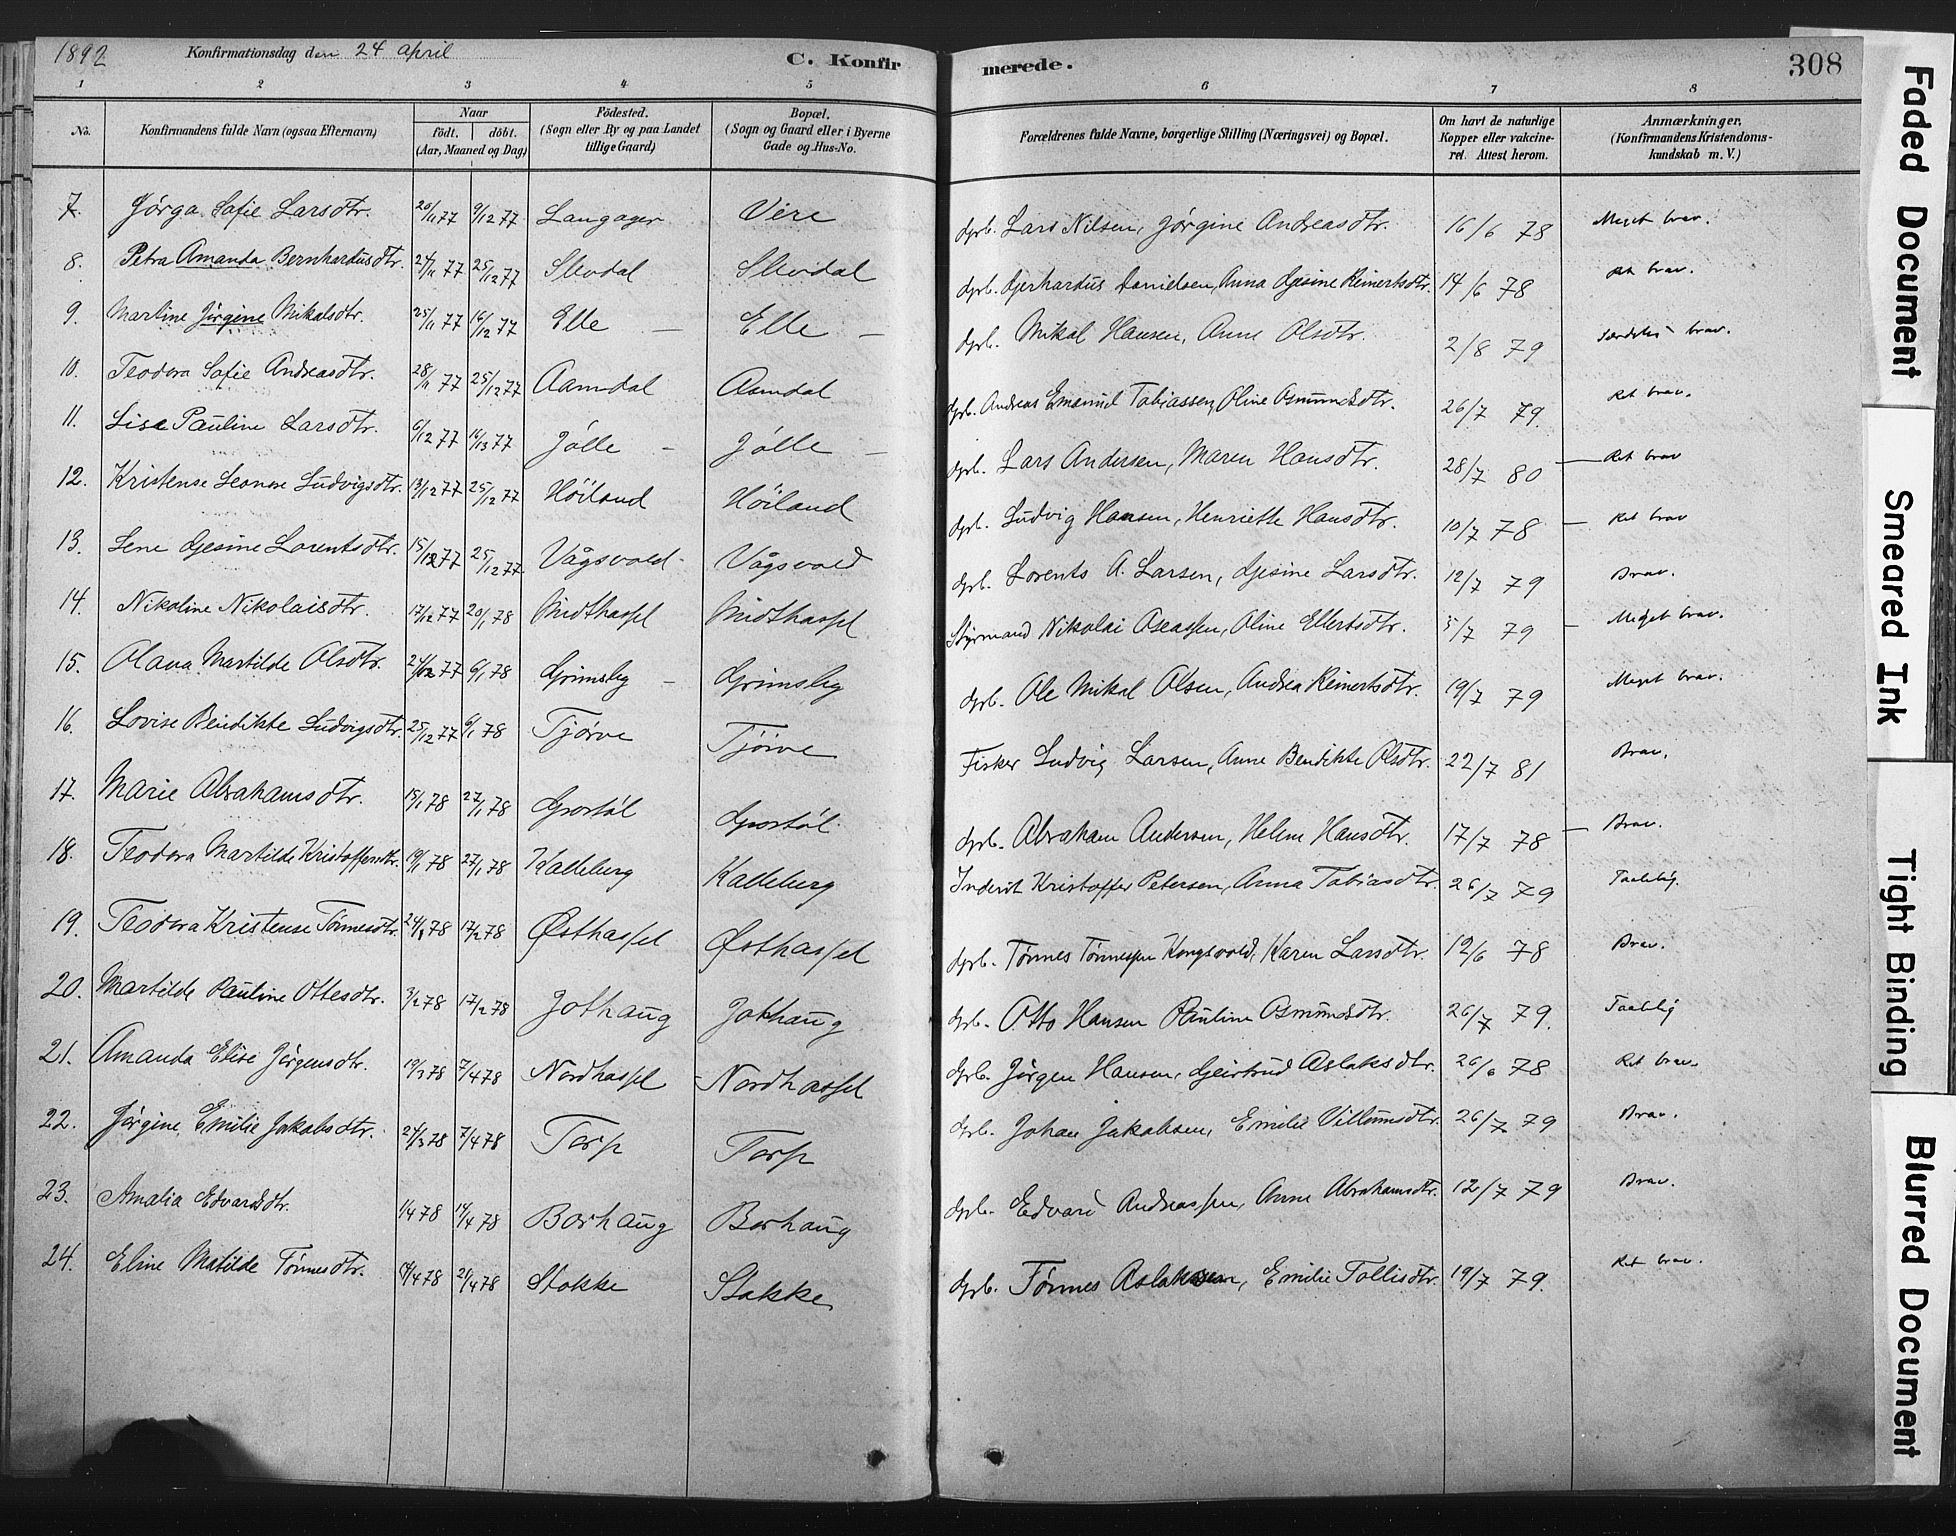 1892 Konfirmationsdag den 24 April C. Konfir
merede. 308
1 2 3 4 5 6 7 8
No. Konfirmandens fulde Navn (ogsaa Efternavn) Naar født. døbt. (Aar, Maaned og Dag) Fødested. (Sogn eller By og paa Landet tillige Gaard) Bopæl. (Sogn og Gaard eller i Byerne Gade og Hus-No. Forældrenes fulde Navne, borgerlige Stilling (Næringsvei) og Bopæl. Om havt de naturlige Kopper eller vakcineret. Attest herom. Anmærkninger, (Konfirmandens Kristendomskundskab m. V.)
7. Jørga Sofie Larsdtr. 20/11 77 9/12 77 Langager Vere Gprb. Lars Nilsen, Jørgine Andreasdtr. 16/6 78 Meget brav.
8. Petra Amanda Bernhardusdtr. 24/11 77 25/12 77 Slevdal Slevdal Gprb. Gerhardus Danielsen, Anna Gjesine Reinertsdtr. 14/6 78 Ret brav.
9. Martine Jørgine Mikalsdtr. 25/11 77 16/12 77 Elle — Elle — Gprb. Mikal Hansen, Anne Olsdtr. 2/8 79 Særdeles brav.
10. Teodora Sofie Andreasdtr. 28/11 77 25/12 77 Aamdal Aamdal Gprb. Andreas Emanuel Tobiassen, Oline Osmundsdtr. 26/7 79. Ret brav.
11. Lise Pauline Larsdtr. 6/12 77 16/13 77 Jølle — Jølle — Gprb. Lars Andersen, Maren Hansdtr. 28/7 80 — Ret brav
12. Kristense Leonore Ludvigsdtr. 13/12 77 25/12 77 Høiland Høiland Gprb. Ludvig Hansen, Henriette Hansdtr. 10/7 78 — Ret brav
13. Lene Gjesine Lorentsdtr. 15/12 77 25/12 77. Vågsvold Vågsvold Gprb. Lorents A. Larsen, Gjesine Larsdtr. 12/7 79 Brav.
14. Nikoline Nikolaisdtr. 17/12 77 20/1 78 Midthassel Midthassel Styrmand Nikolai Aseassen, Oline Ellertsdtr. 5/7 79 — Meget brav.
15. Olava Martilde Olsdtr. 24/12 77 6/1 78 Grimsby — Grimsby Gprb. Ole Mikal Olsen, Andrea Reinertsdtr. 19/7 79 Meget brav.
16. Lovise Bendikte Ludvigsdtr. 25/12 77 6/1 78 Tjørve Tjørve Fisker Ludvig Larsen, Anne Bendikte Olsdtr. 22/7 81 Brav.
17. Marie Abrahamsdtr. 15/1 78 27/1 78 Gjorstøl Gjorstøl. Gprb. Abraham Andersen, Helene Hansdtr. 17/7 78 — Brav.
18. Teodora Martilde Kristoffersdtr. 19/1 78 27/1 78 Kalleberg Kalleberg Inderst Kristoffer Petersen, Anna Tobiasdtr. 26/7 79 Taalelig.
19. Teodora Kristense Tønnesdtr. 24/1 78 17/2 78 Østhassel Østhassel Gprb. Tønnes Tønnessen Kongsvold, Karen Larsdtr. 12/6 78 Brav.
20. Martilde Pauline Ottesdtr. 3/2 78 17/2 78 Jothaug Jothaug Gprb. Otto Hansen Pauline Osmundsdtr. 26/7 79. Taalelig
21. Amanda Elise Jørgensdtr. 19/3 78 7/4 78 Nordhassel — Nordhassel Gprb. Jørgen Hansen, Geirtrud Aslaksdtr. 26/6 78 Ret brav.
22. Jørgine Emilie Jakobsdtr. 24/3 78 7/4 78 Torp Torp Gprb. Johan Jakobsen, Emilie Villumsdtr. 26/7 79 Brav.
23. Amalia Edvardsdtr. 1/4 78 14/4 78 Borhaug Borhaug Gprb. Edvard Andreassen, Anne Abrahamsdtr. 12/7 79 Brav.
24. Eline Matilde Tønnesdtr. 4/78 21/4 78 Stokke Stokke Gprb. Tønnes Aslaksen, Emilie Tollisdtr. 19/7 79. Ret brav.
Faded Document
Smeared Ink
Tight Binding
Blurred Document